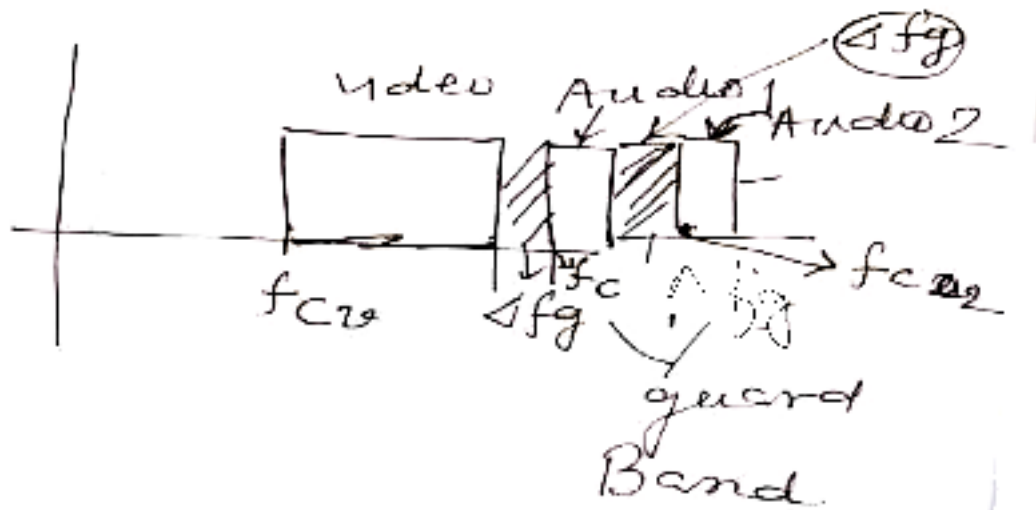 Δfg
Video Audio 1
Audio 2
fcv Δfg fc fc2
guard
Band